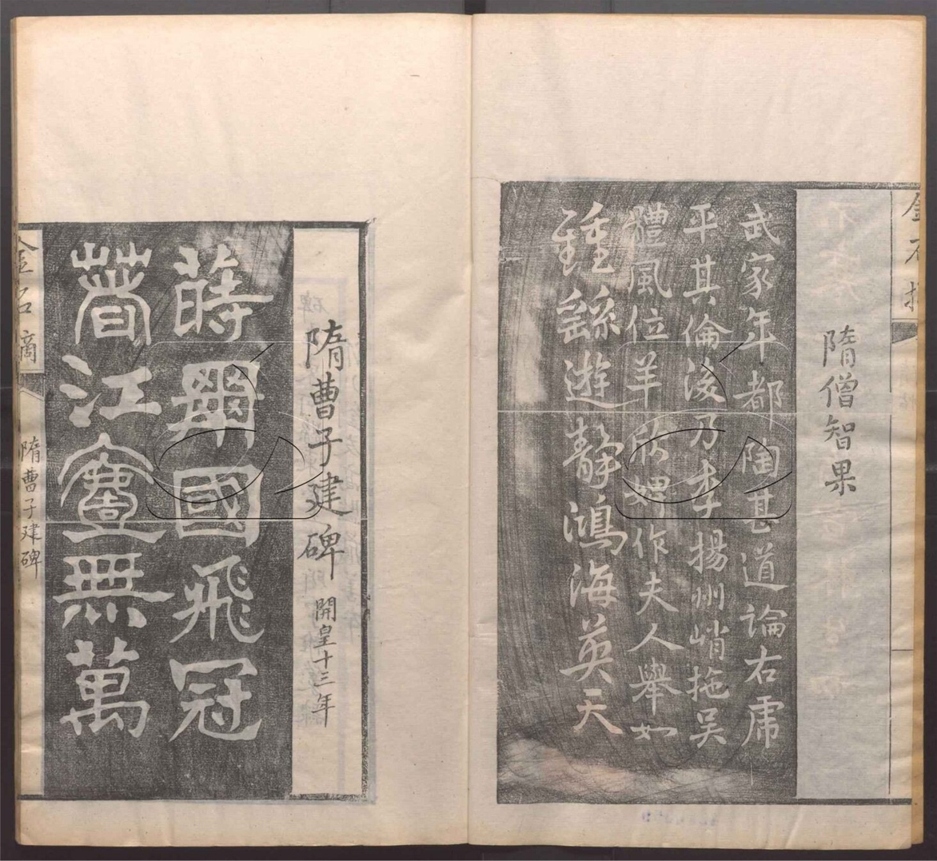 金石摘
隋僧智果
武家年都陶甚道論右庸
平其倫浚乃李揚州峭拖吴
體風位羊欣婢作夫人舉如
鍾繇遊靜鴻海英天
隋曹子建碑 開皇十三年
蒔 國飛冠
蓍江 無萬
金石摘
隋曹子建碑